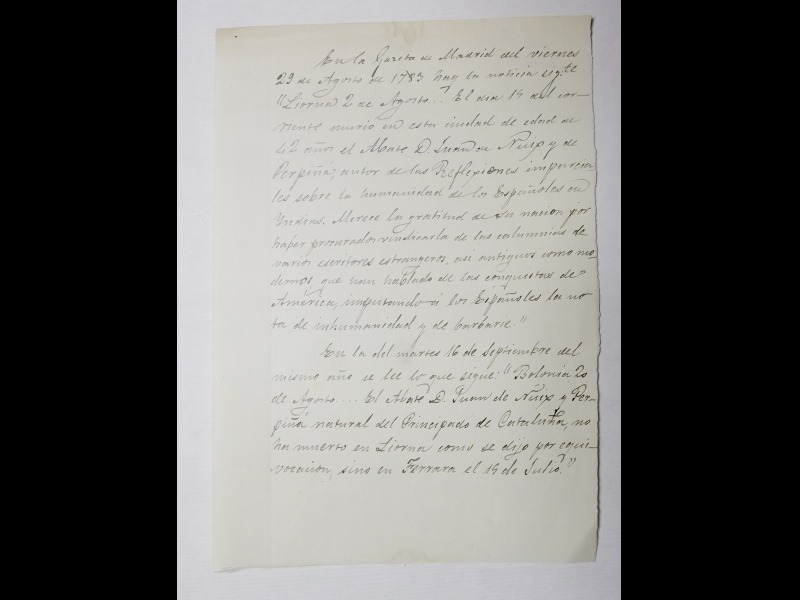 En la Gaceta de Madrid del viernes
29 de Agosto de 1783 hay la noticia sigte
"Liorna 2 de Agosto... El dia 15 del cor-
riente murió en esta ciudad de edad de
42 años el Abate D. Juan de Nuix y de
Perpiñá, autor de las Reflexiones imparcia-
les sobre la humanidad de los Españoles en
Yndias. Merece la gratitud de su nacion por
haber procurado vindicarla de las calumnias de
varios escritores estrangeros, asi antiguos como mo-
dernos, que han hablado de las conquistas de
América, imputando á los Españoles la no-
ta de inhumanidad y de barbarie."
En la del martes 16 de Septiembre del
mismo año se lee lo que sigue: "Bolonia 20
de Agosto.... El Abate D. Juan de Nuix y Per-
piñá natural del Principado de Cataluña, no
ha muerto en Liorna como se dijo por equi-
vocacion, sino en Ferrara el 15 de Julio."